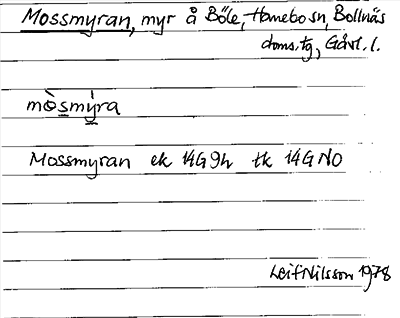 Mossmyran, myr å Böle, Hanebo sn, Bollnäs
doms.tg, Gävl. l.
mòsmýra
Mossmyran ek 14G9h tk 14G NO
Leif Nilsson 1978